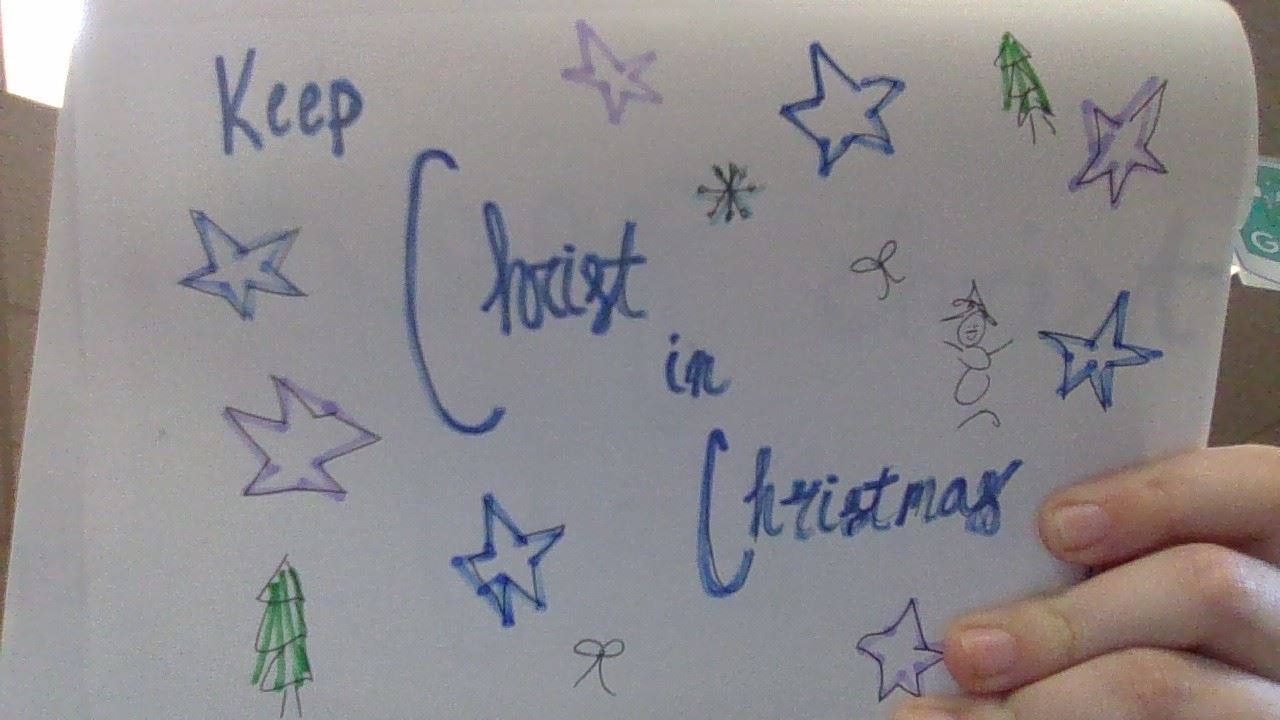 Keep
Christ
in
Christmas
G